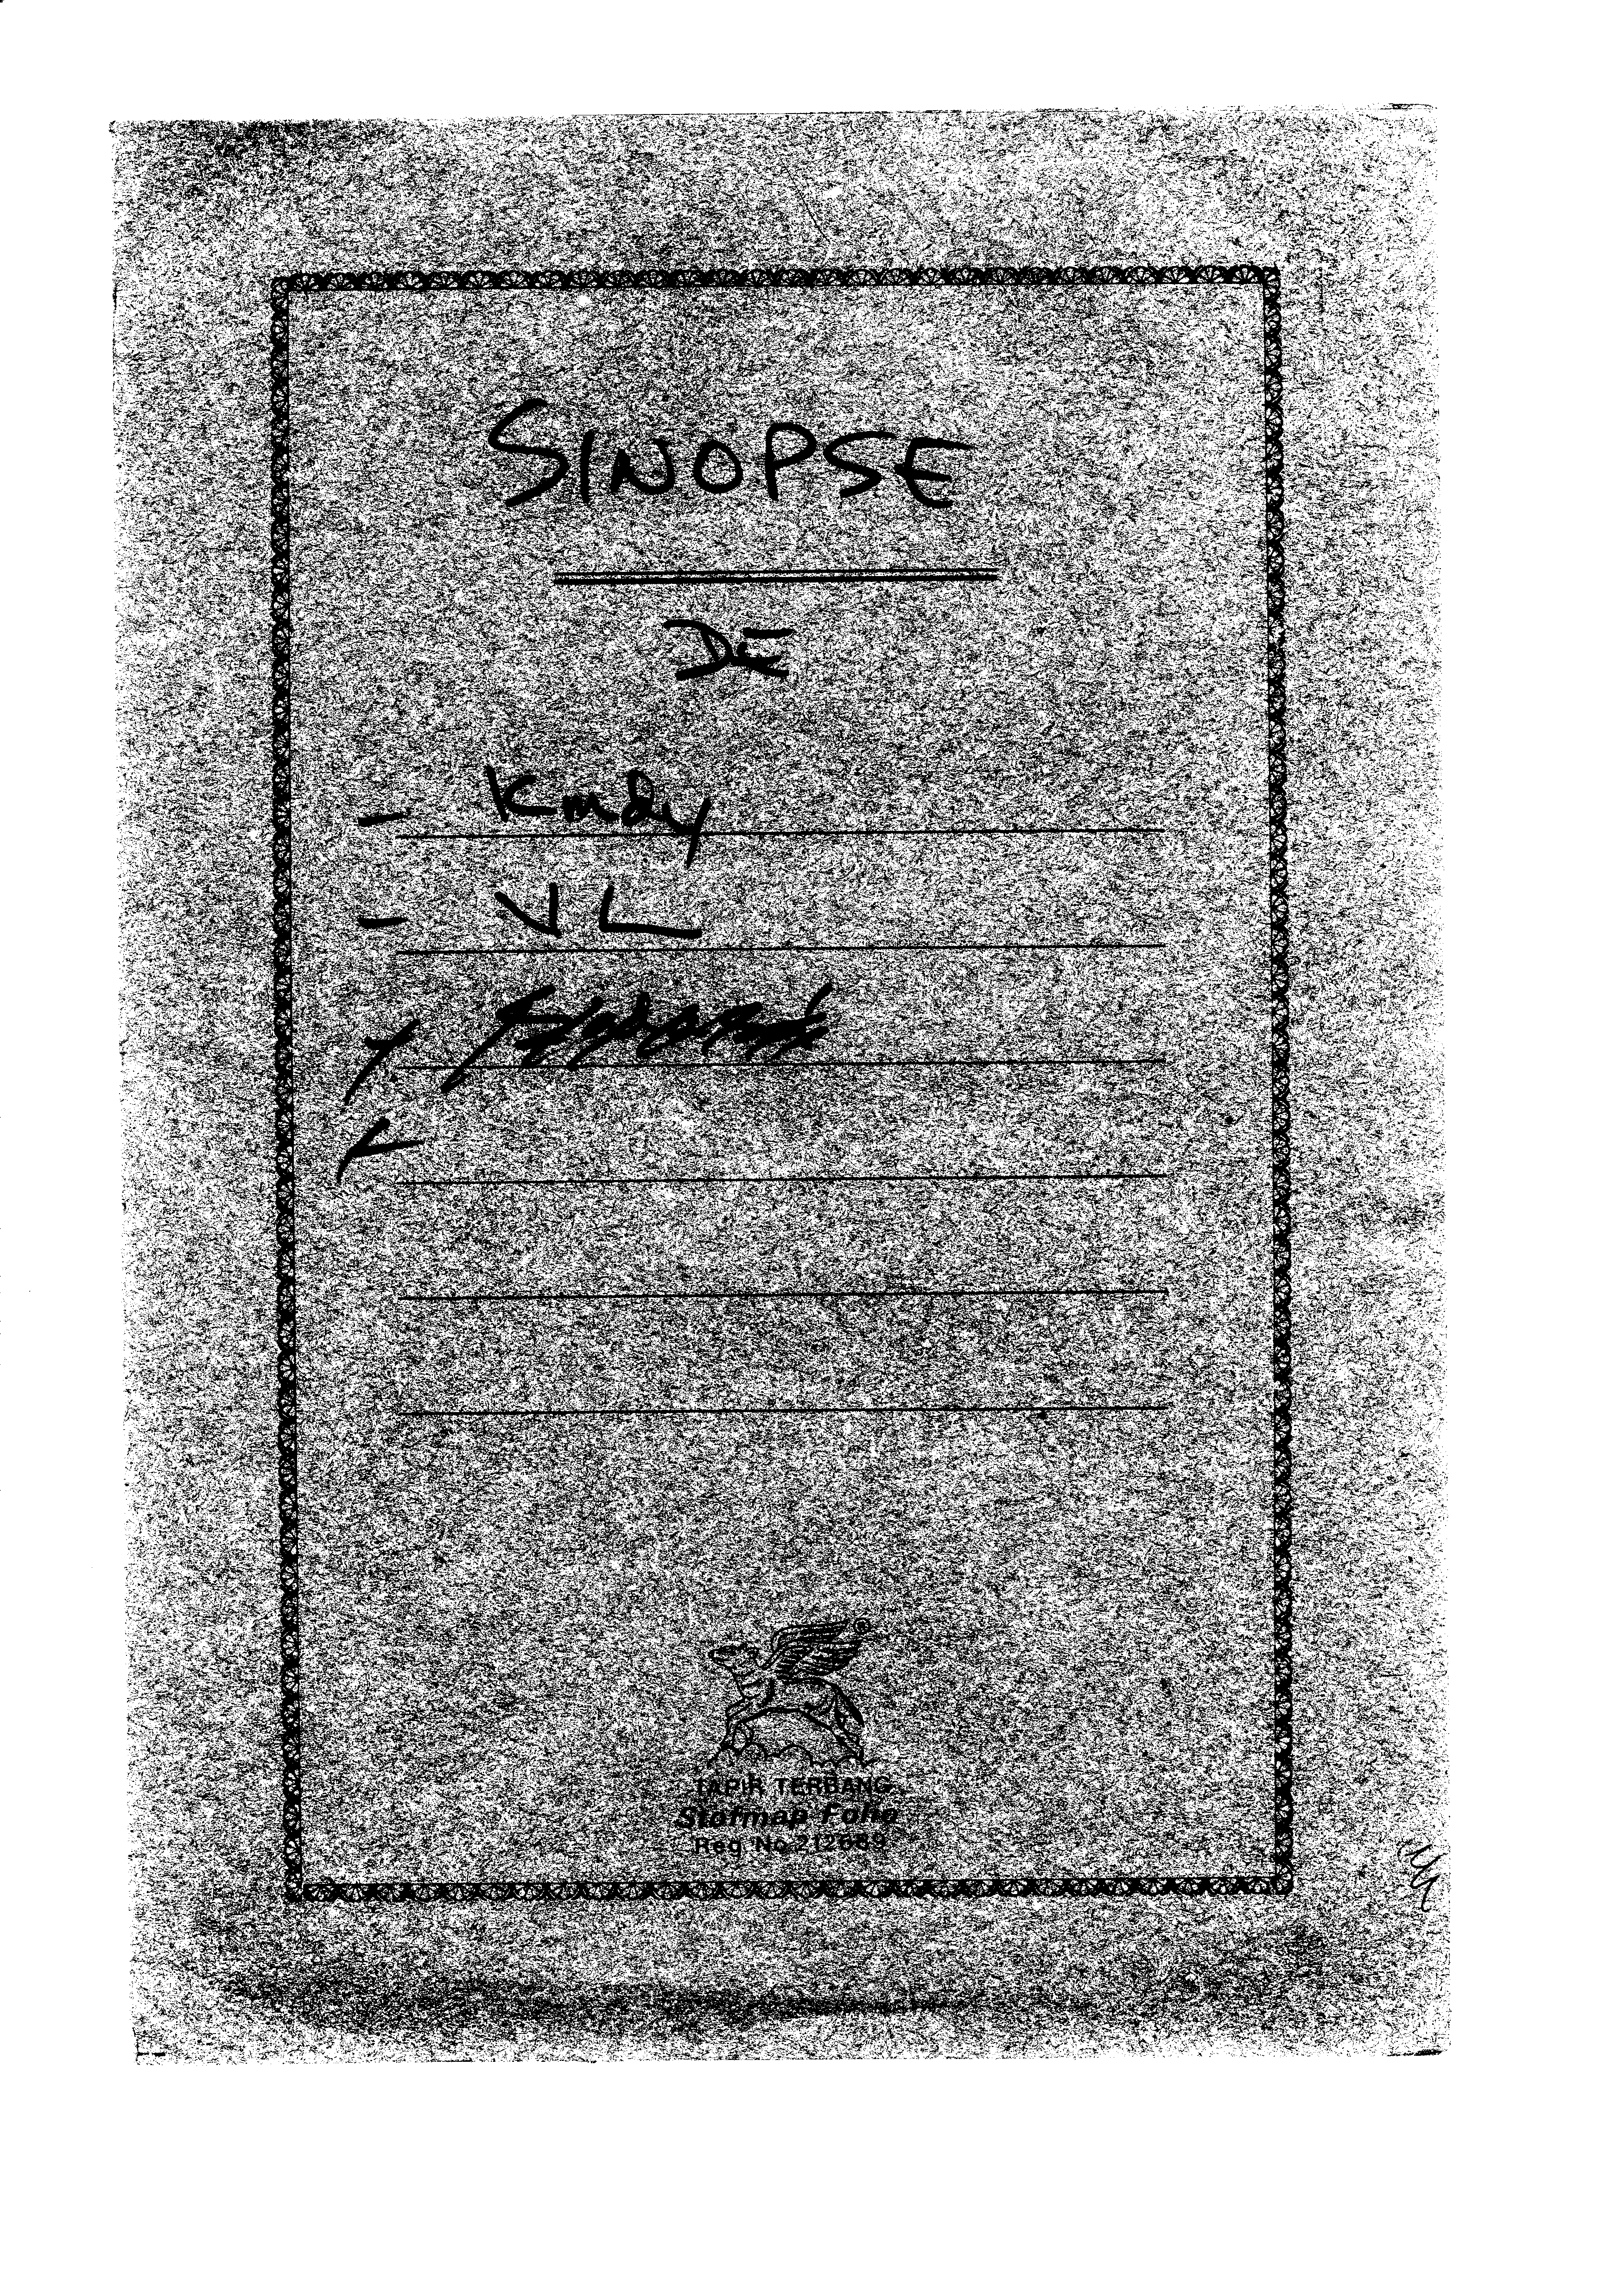 SINOPSE
DE
- Kmdy
- VL
TAPIR TERBANG
Stofmap Folio
Reg No 212689